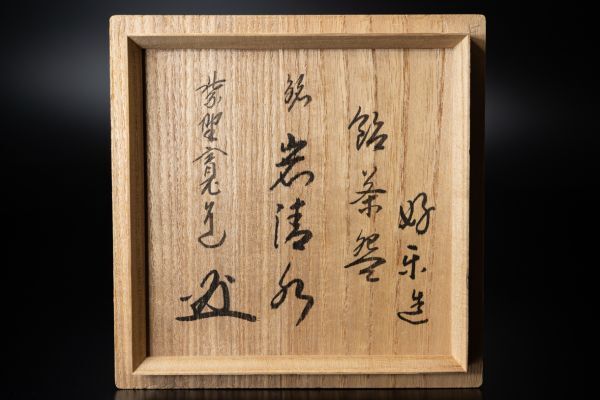 好楽造
飴茶盌
銘 岩清水
紫野寛道